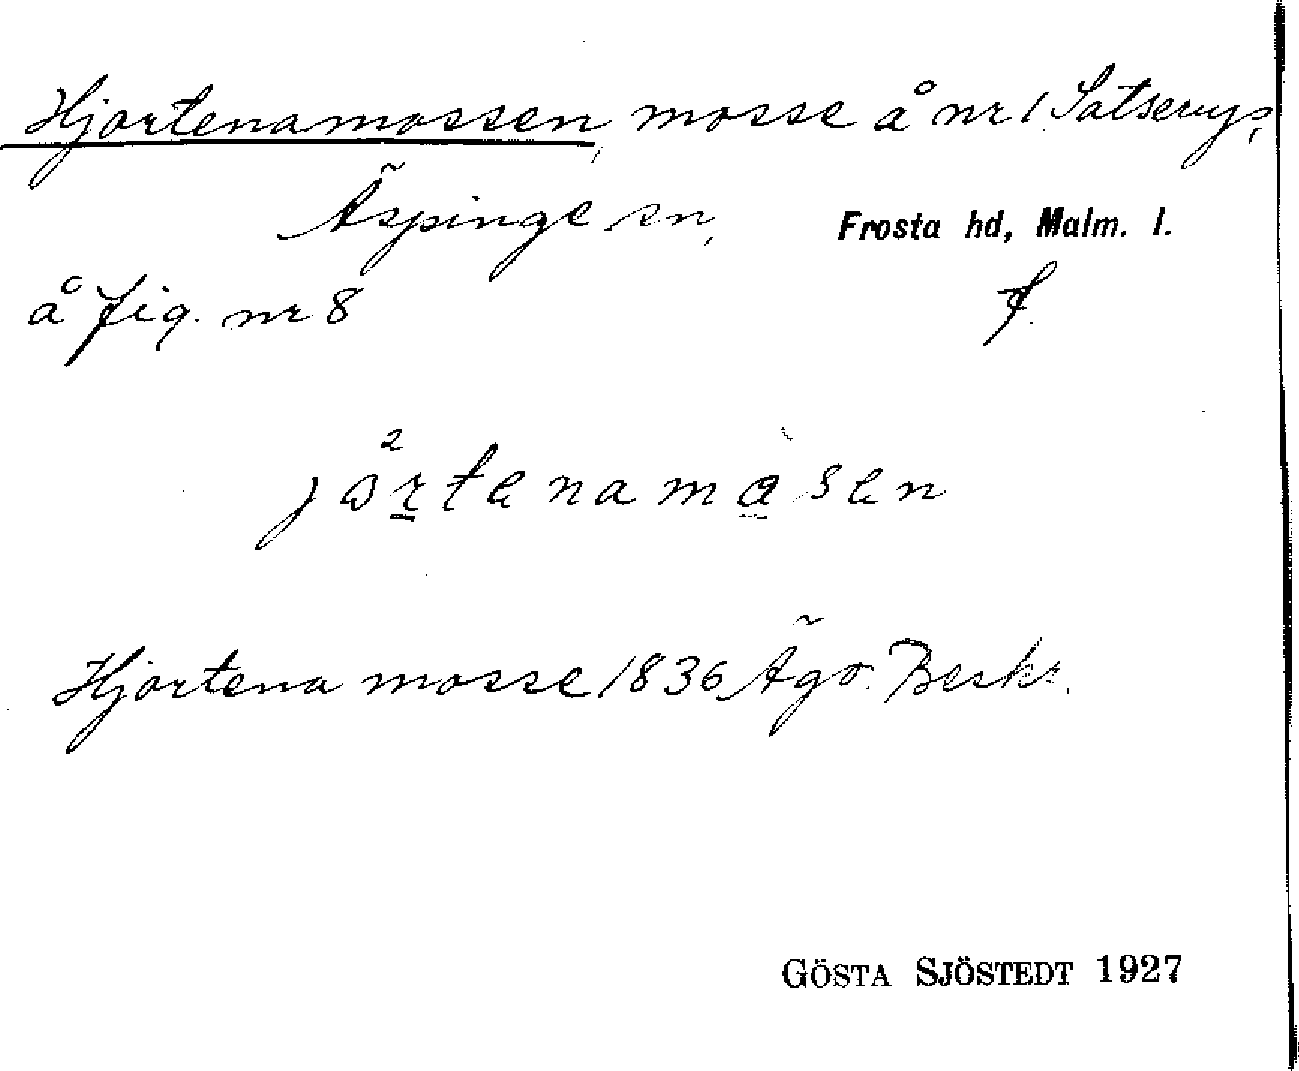 Hjortenamossen, mosse å nr 1 Satseryp,
Äspinge sn, Frosta hd, Malm. l.
å fig. nr 8 f.
jo²rtenamàsen
Hjortena mosse 1836 Ägo. Beskr.
GÖSTA SJÖSTEDT 1927